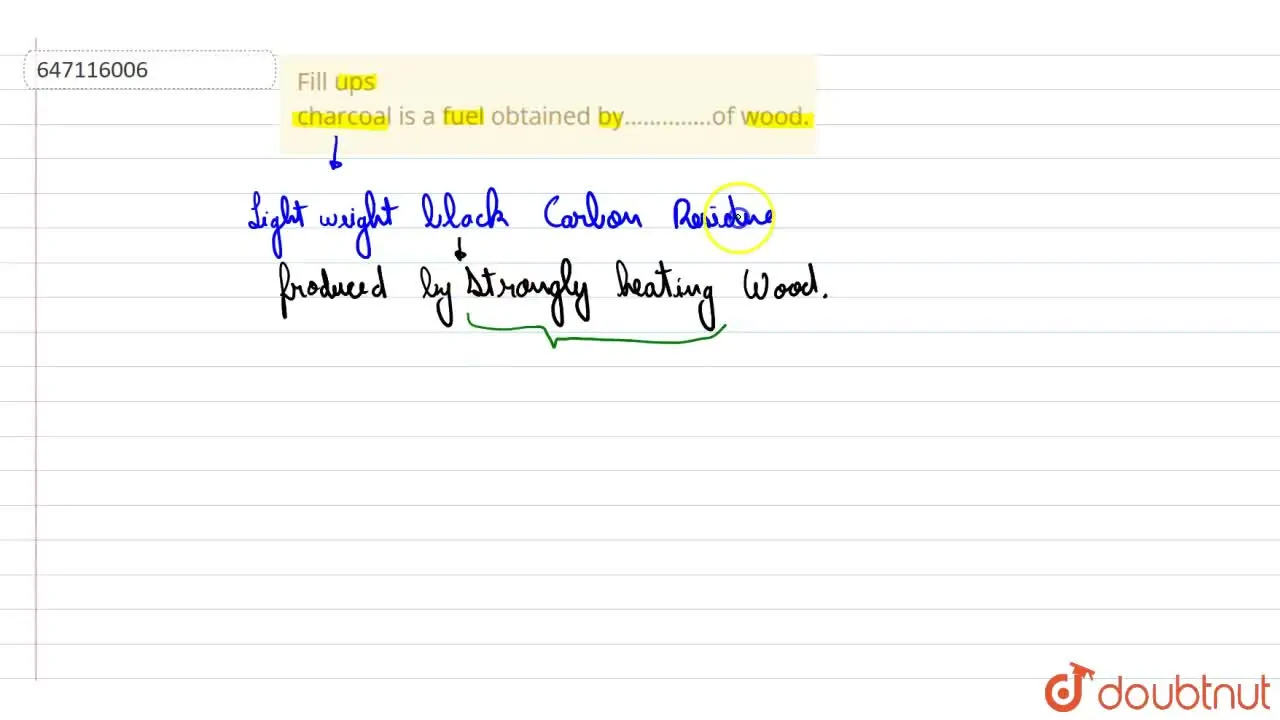 647116006
Fill ups
charcoal is a fuel obtained by..............of wood.
Light weight black Carbon Residue
produced by strongly heating Wood.
doubtnut